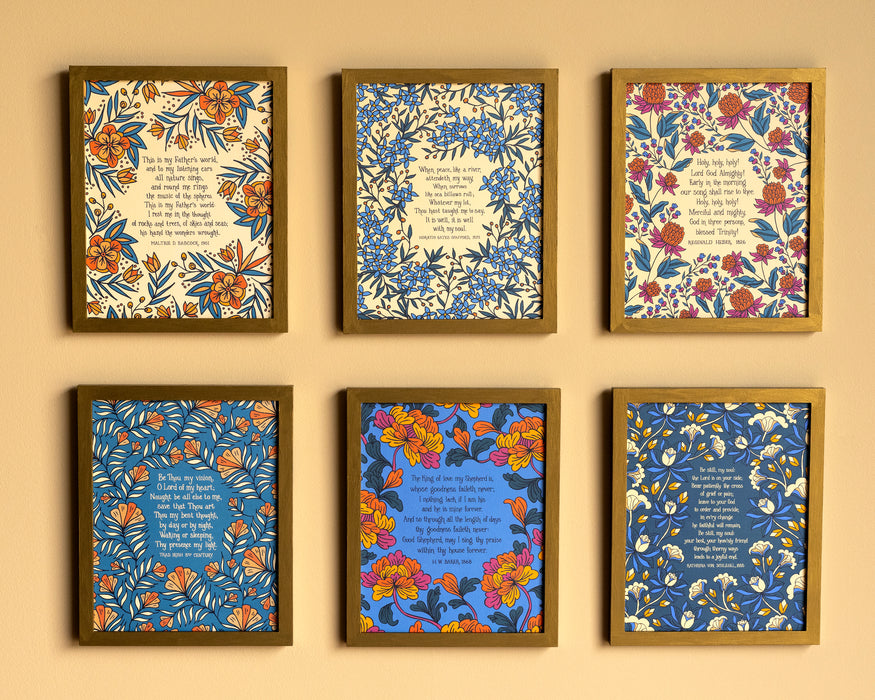 This is my Father's world,
and to my listening ears
all nature sings,
and round me rings
the music of the spheres.
This is my Father's world
I rest me in the thought
of rocks and trees, of skies and seas;
his hand the wonders wrought.
MALTBIE D. BABCOCK, 1901
When peace, like a river,
attendeth my way,
When sorrows
like sea billows roll;
Whatever my lot,
Thou hast taught me to say,
It is well, it is well
with my soul.
HORATIO GATES SPAFFORD, 1873
Holy, holy, holy!
Lord God Almighty!
Early in the morning
our song shall rise to thee.
Holy, holy, holy!
Merciful and mighty,
God in three persons,
blessed Trinity!
REGINALD HEBER, 1826
Be Thou my vision,
O Lord of my heart;
Naught be all else to me,
save that Thou art
Thou my best thought,
by day or by night,
Waking or sleeping,
Thy presence my light.
TRAD. IRISH 8TH CENTURY
The King of love my Shepherd is,
whose goodness faileth never;
I nothing lack if I am his
and he is mine forever.
And so through all the length of days
thy goodness faileth never:
Good Shepherd, may I sing thy praise
within thy house forever.
H.W. BAKER, 1868
Be still, my soul:
the Lord is on your side;
Bear patiently the cross
of grief or pain;
leave to your God
to order and provide;
in ev'ry change
he faithful will remain.
Be still, my soul:
your best, your heavenly friend
through thorny ways
leads to a joyful end.
KATHARINA VON SCHLEGAL, 1855